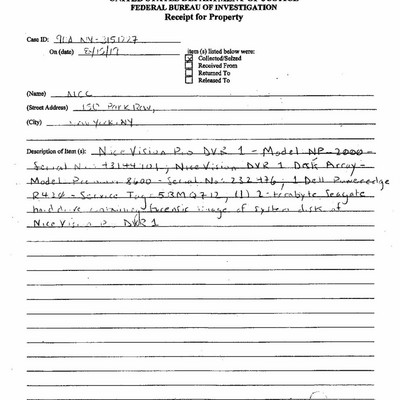 UNITED STATES DEPARTMENT OF JUSTICE
FEDERAL BUREAU OF INVESTIGATION
Receipt for Property
Case ID: 90A NY-3151227
On (date) 8/15/19
item(s) listed below were:
Collected/Seized
Received From
Returned To
Released To
(Name) MCC
(Street Address) 150 Park Row,
(City) New York, NY
Description of Item(s): Nice Vision Pro DVR 1 - Model NP-2000-
Serial No: 43144101, Nice Vision DVR 1 Disk Array-
Model 8600 - Serial No: 232476; 1 Dell Poweredge
R420 - Service Tag: 5BMQ712, (1) 2-terabyte Seagate
hard drive containing forensic image of system disk of
Nice Vision Pro DVR 1